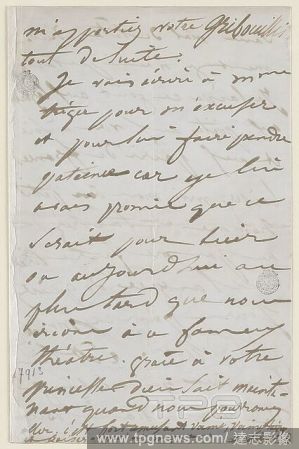 m'apportiez votre Gribouillis
tout de suite.
Je vais écrire à Mme
pour m'excuser
et pour lui faire prendre
patience car je lui
avais promis que ce
serait pour hier
ou aujourd'hui au
plus tard que nous
irions à ce fameux
théâtre. grâce à votre
princesse Dieu sait mainte-
nant quand nous pourrons
7913
www.tpgnews.com/
達志影像